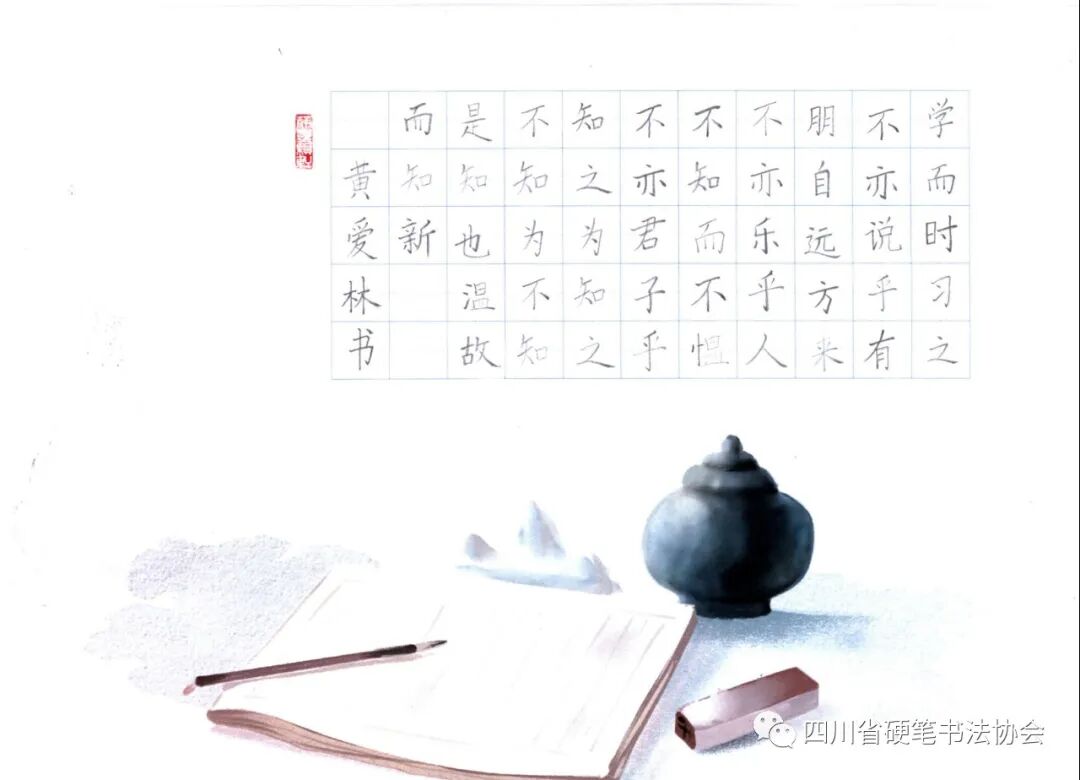 学而时习之
不亦说乎有
朋自远方来
不亦乐乎人
不知而不愠
不亦君子乎
知之为知之
不知为不知
是知也温故
而知新
黄爱林书
四川省硬笔书法协会